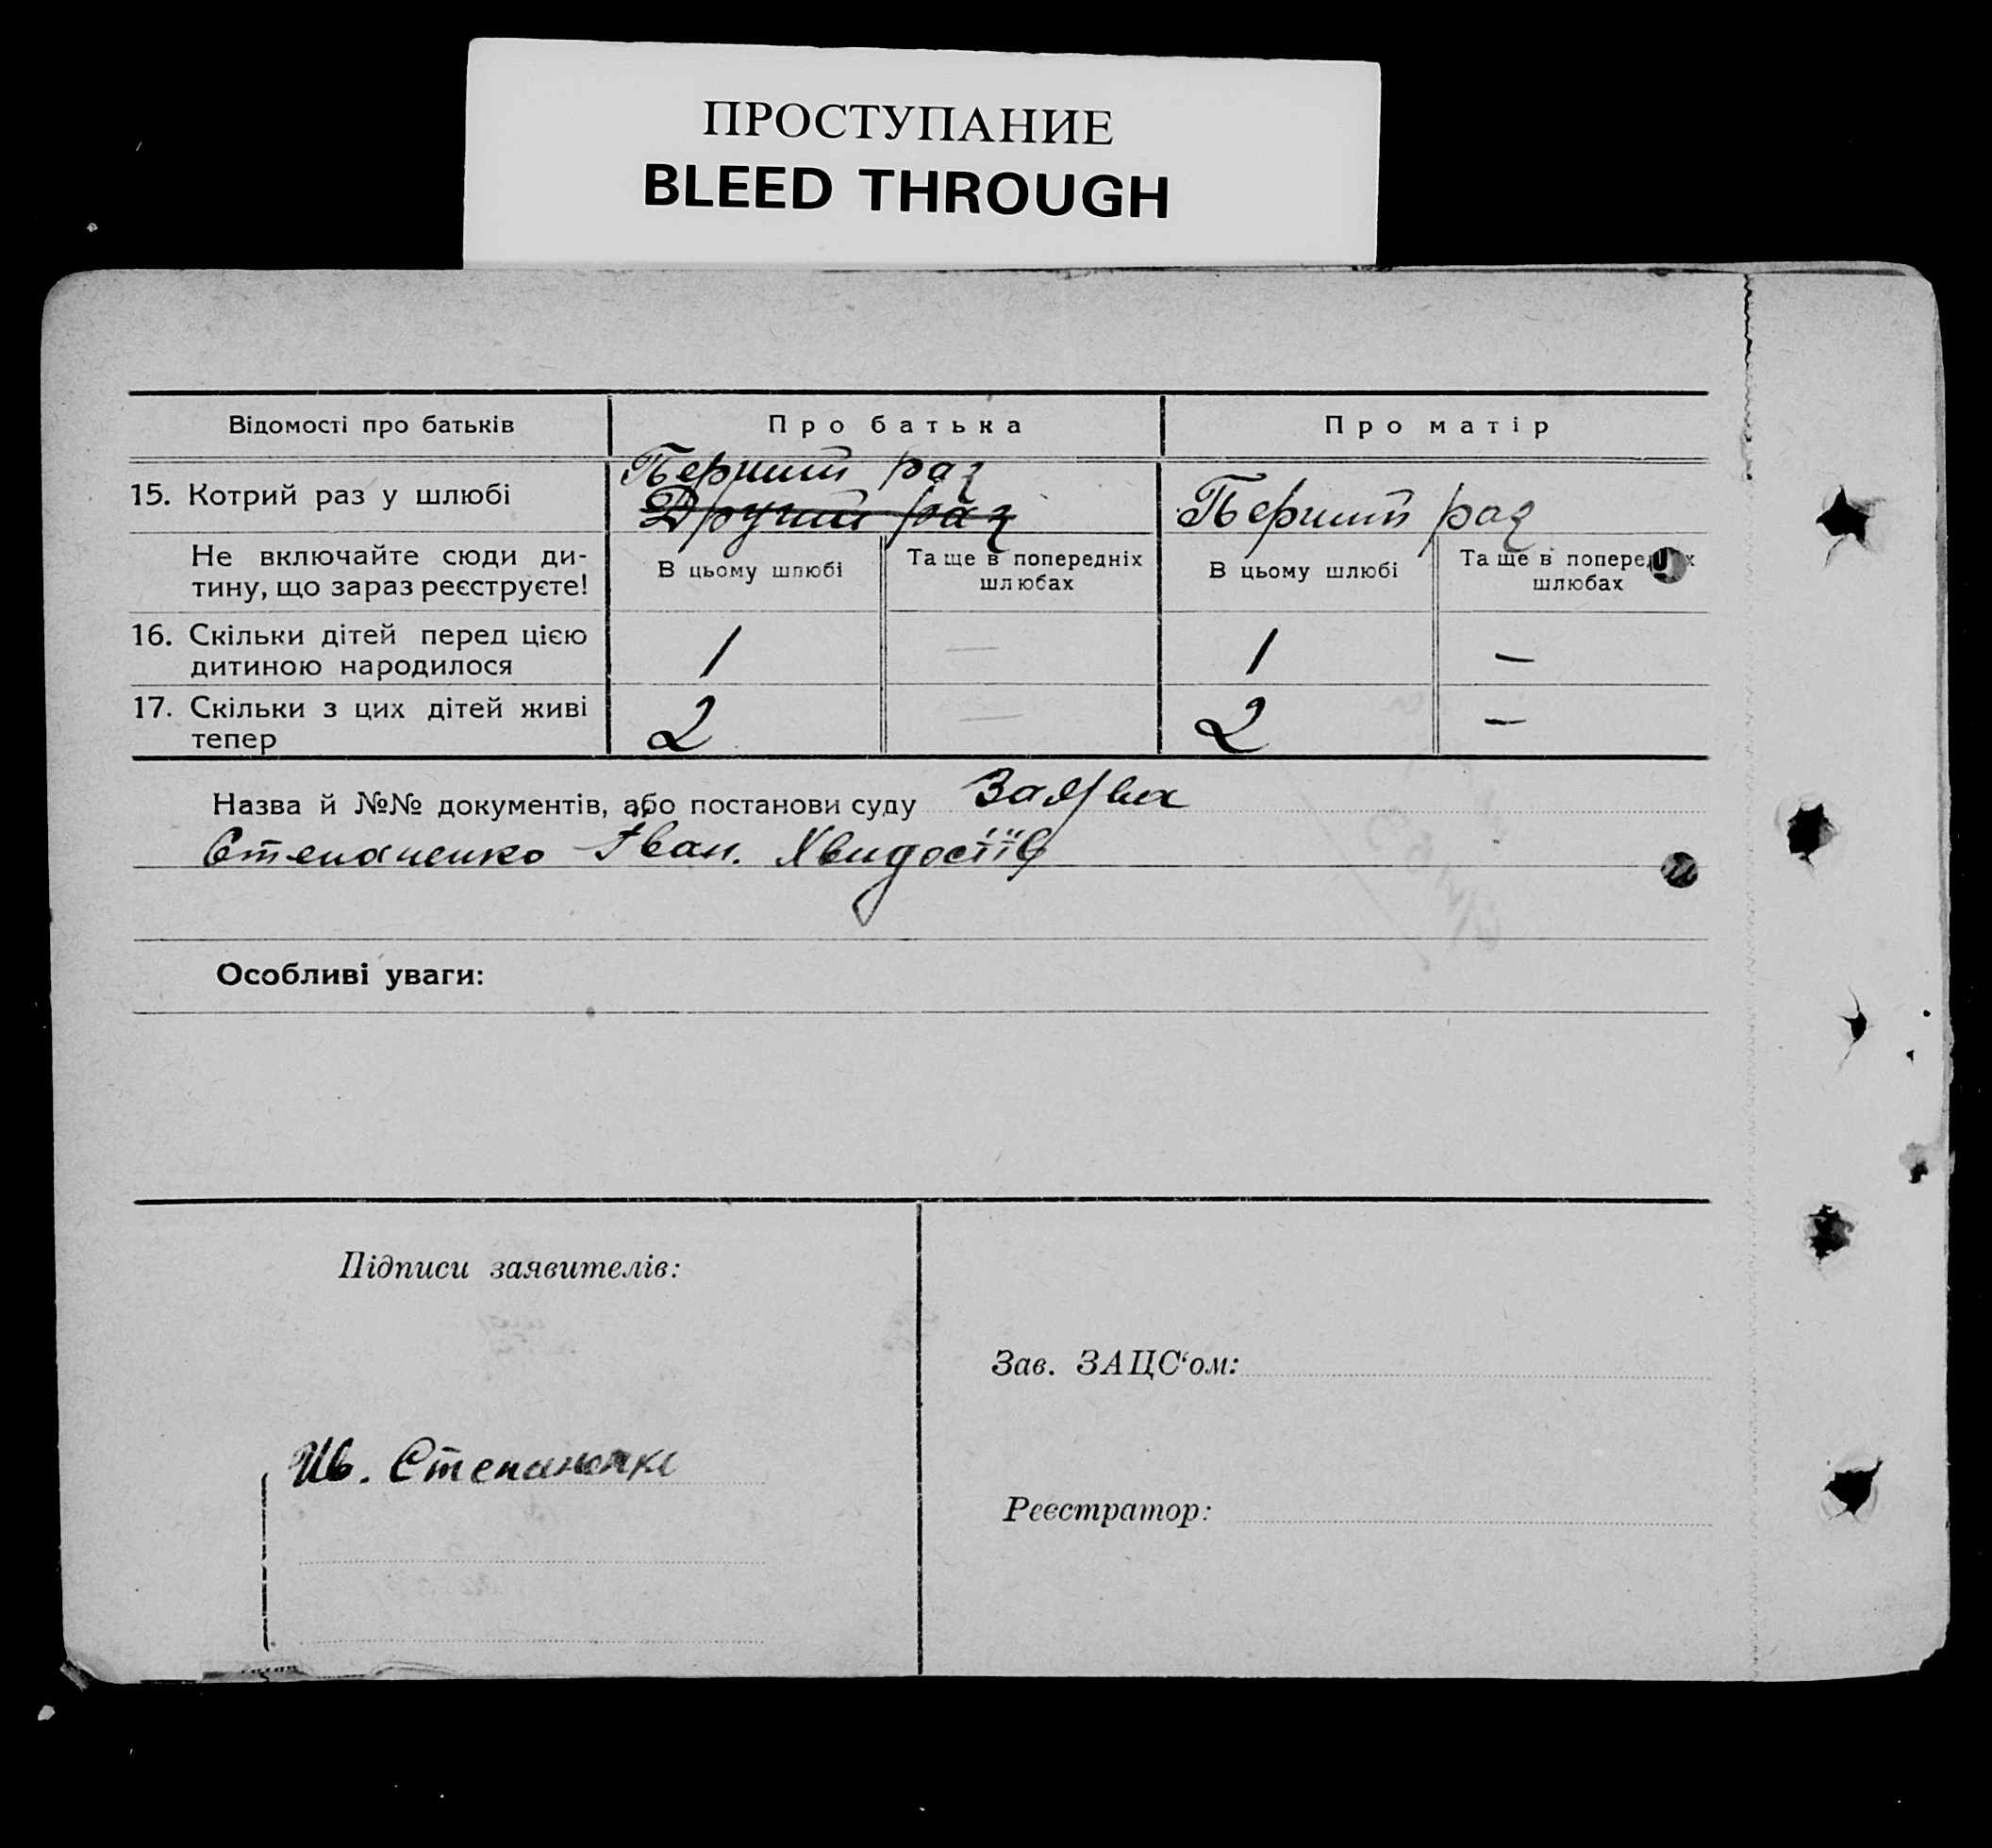 ПРОСТУПАНИЕ
BLEED THROUGH
Відомості про батьків Про батька Про матір
Перший раз
15. Котрий раз у шлюбі Другий раз Перший раз
Не включайте сюди ди-
тину, що зараз реєструєте!
В цьому шлюбі
Та ще в попередніх
шлюбах
В цьому шлюбі
Та ще в попередніх
шлюбах
16. Скільки дітей перед цією
дитиною народилося
1 — 1 —
17. Скільки з цих дітей живі
тепер
2 — 2 —
Назва й №№ документів, або постанови суду Заява
Степаненко Іван.
Особливі уваги:
Підписи заявителів:
Зав. ЗАЦС‘ом:
Ив. Степаненко
Реєстратор: